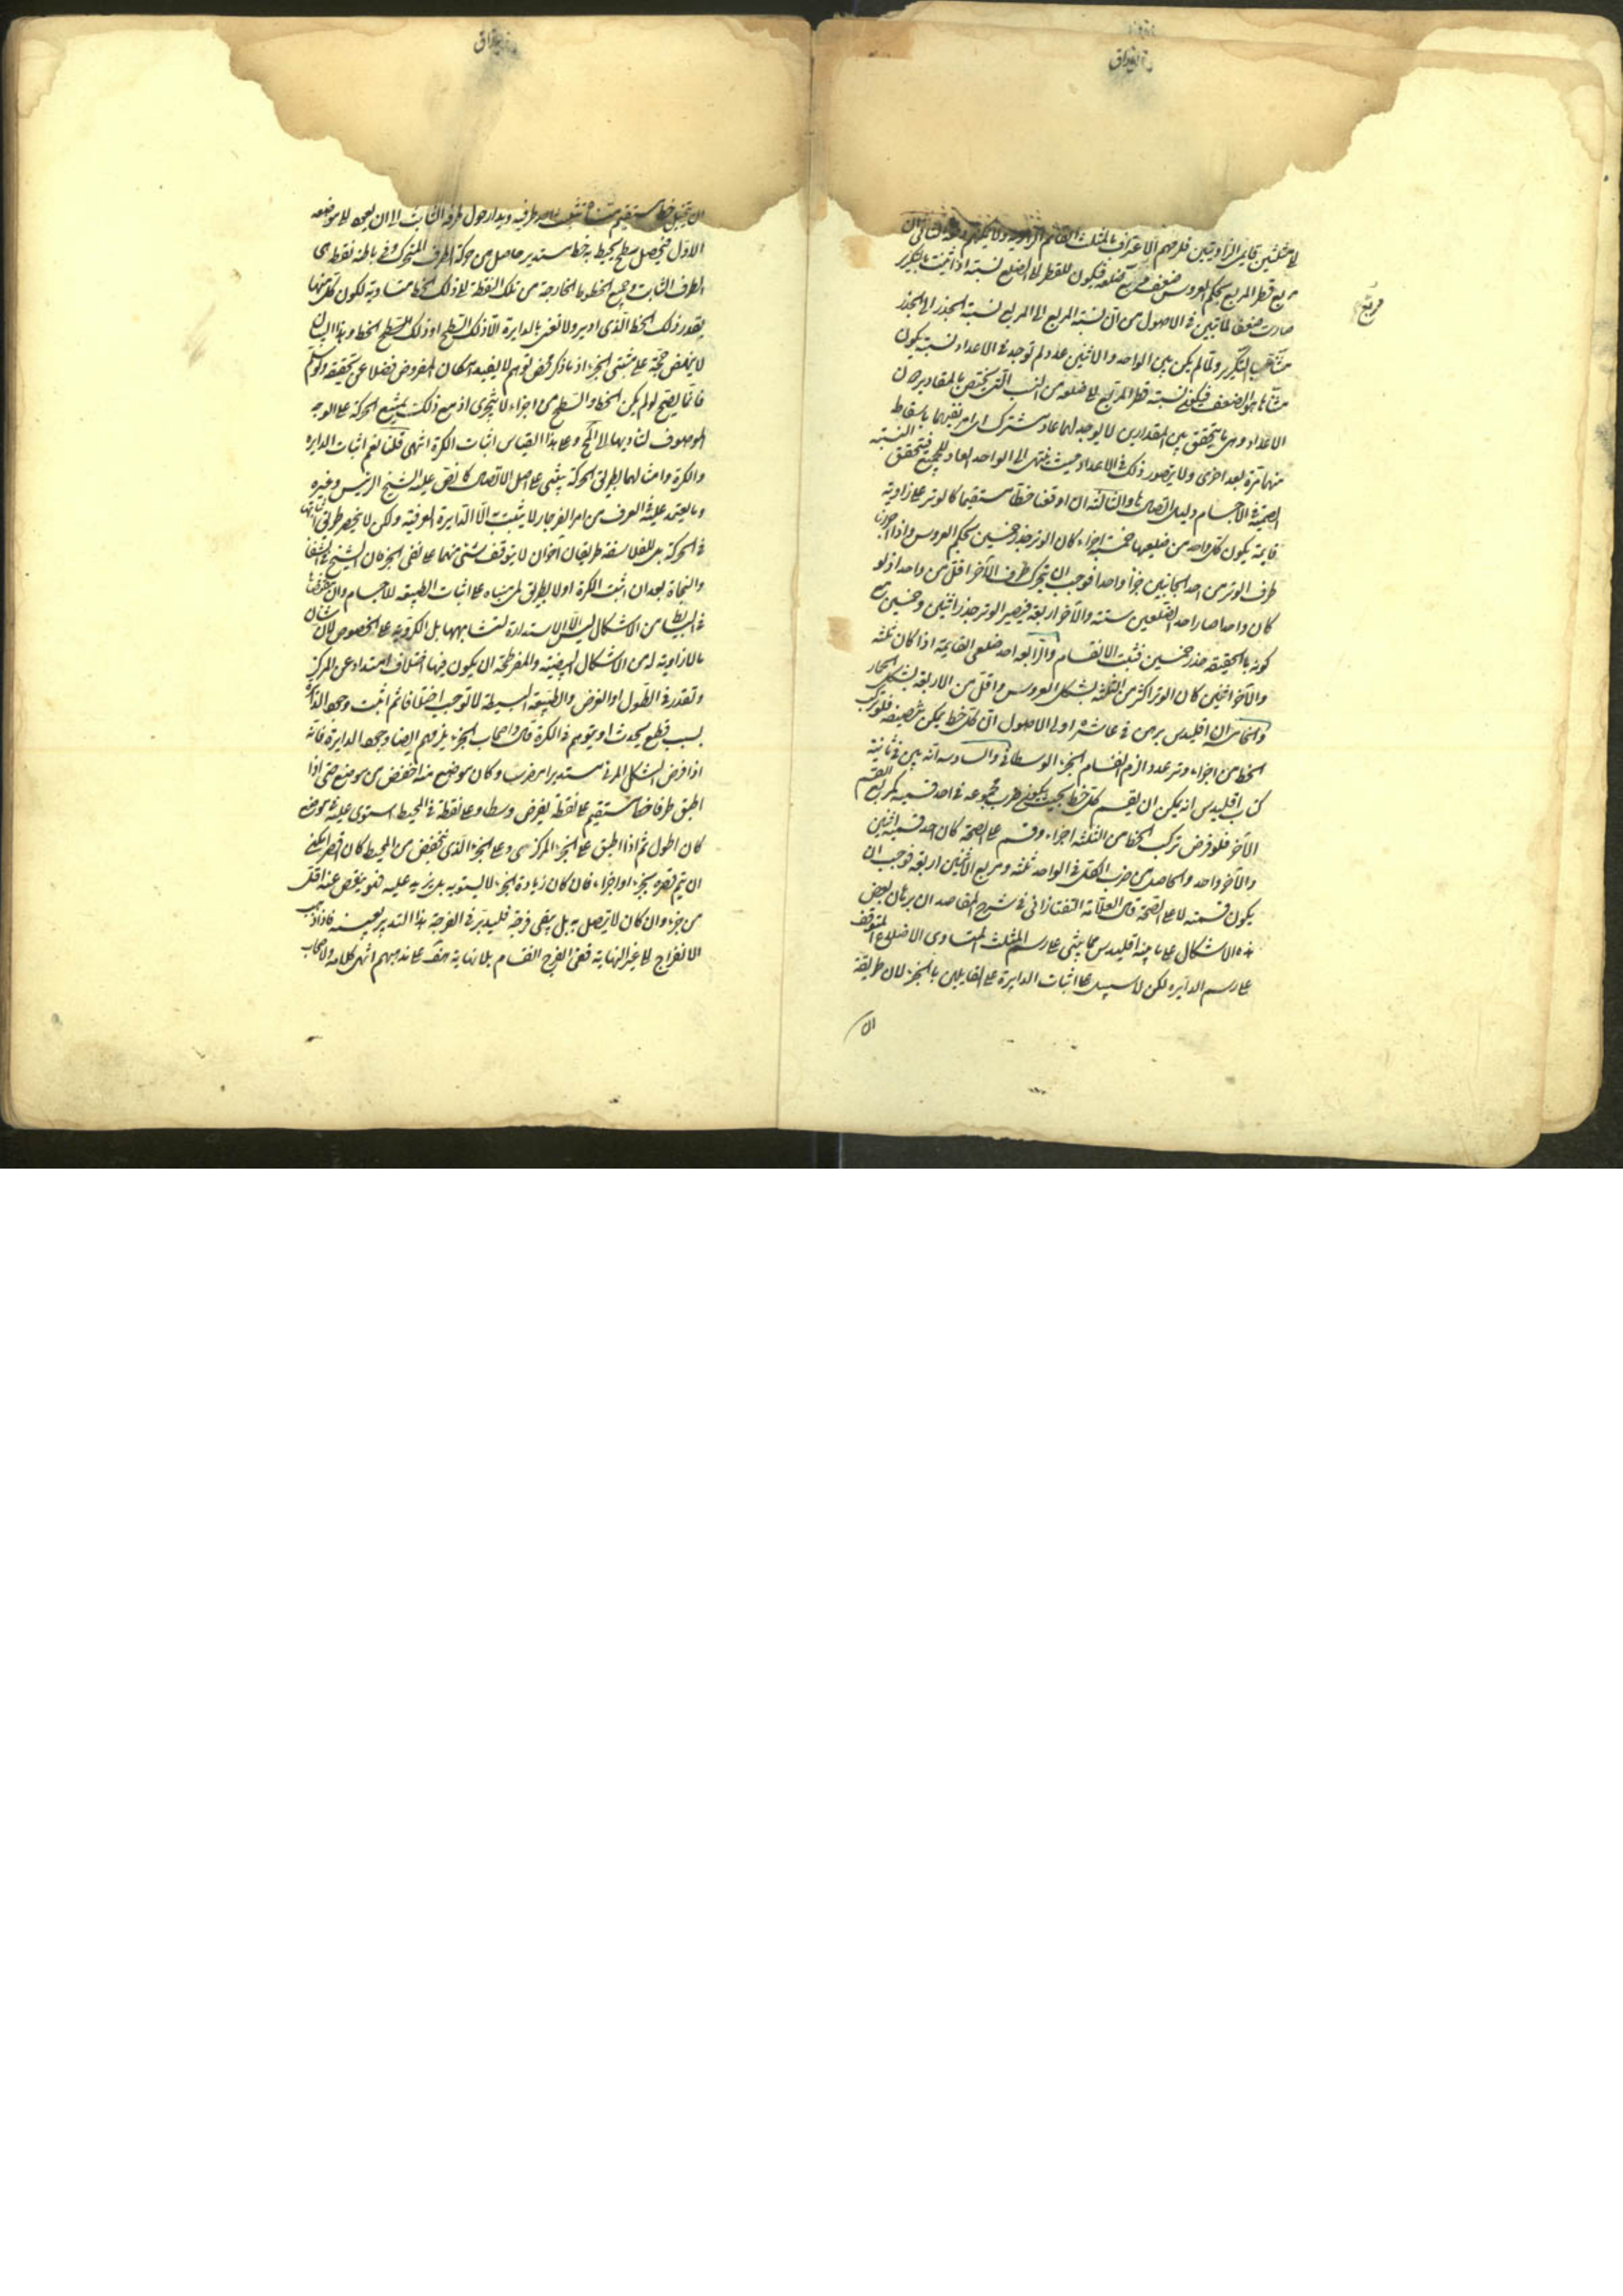 لى مثلثين قايمى الزاويتين فلزمهم الاعتراف بالمثلث القائم الزاوية ولا يمكنهم الثانى ان
مربع قطر المربع بحكم العروس ضعف مربع ضلعه فيكون للقطر الى الضلع نسبة اذا ثنيت بالتكرير
مربع
صارت ضعفا لما تبين فى الاصول من ان نسبة المربع الى المربع نسبة الجذر الى الجذر
مثناة بالتكرير ولما لم يكن بين الواحد والاثنين عدد لم توجد فى الاعداد نسبة يكون
مثناتها هو الضعف فيكون نسبة قطر المربع الى ضلعه من النسب التى تختص بالمقادير دون
الاعداد وهى ما يتحقق بين المقدارين لا يوجد لهما عاد مشترك اى امر يفنيهما باسقاط
منهما مرة بعد اخرى ولا يتصور ذلك فى الاعداد حيث ينتهى الى الواحد العاد للجميع فتحقق النسبة
الصمية فى الاجسام دليل اتصالها والثالثة ان اوقعنا خطا مستقيما كالوتر على زاوية
قايمة يكون كل واحد من ضلعيها خمسة اجزاء كان الوتر جذر خمسين بحكم العروس واذا جررنا
طرف الوتر من احد الجانبين جزأ واحدا فوجب ان يتحرك طرف الآخر اقل من واحد اذ لو
كان واحدا صار احد الضلعين ستة والآخر اربعة فيصير الوتر جذر اثنين وخمسين مع
كونه بالحقيقة جذر خمسين فثبت الانقسام والرابعة احد ضلعى القايمة اذا كان ثلثة
والآخر اثنين كان الوتر اكثر من الثلثة بشكل العروس واقل من الاربعة بشكل الحمار
والخامس ان اقليدس برهن فى عاشره اولى الاصول ان كل خط يمكن تنصيفه فلو تركب
الخط من اجزاء وتر عددا لزم انقسام الجزء الوسطانى والسادسة انه بين فى ثانية
كتاب اقليدس انه يمكن ان يقسم كل خط بحيث يكون ضرب مجموعه فى احد قسميه كمربع القسم
الآخر فلو فرض تركب الخط من الثلثة اجزاء وقسم على الصحة كان احد قسميه اثنين
والآخر واحد والحاصل من ضرب الكل فى الواحد ثلثة ومربع الاثنين اربعة فوجب ان
يكون قسمته لا على الصحة قال العلامة التفتازانى فى شرح المقاصد ان برهان بعض
هذه الاشكال على ما بينه اقليدس مما يبتنى على رسم المثلث المتساوى الاضلاع المتوقف
على رسم الدايرة لكن لا سبيل الى اثبات الدايرة على القايلين بالجزء لان طريقة
ان
ان يتخيل خط مستقيم يثبت احد طرفيه ويدار حول طرفه الثابت الى ان يعود الى موضعه
الاول فيحصل سطح يحيط به خط مستدير حاصل من حركة الطرف المتحرك وفى باطنه نقطة هى
الطرف الثابت وجميع الخطوط الخارجة من تلك النقطة الى ذلك الخط متساوية لكون كل منها
بقدر ذلك الخط الذى ادير ولا نعنى بالدايرة الا ذلك السطح او ذلك الخط وهذا البيان
لا ينهض حجة على مثبتى الجزء اذ ما ذكر محض توهم لا يفيد امكان المفروض فضلا عن تحققه ولو سلم
فانما يصح لو لم يكن الخط والسطح من اجزاء لا يتجزى اذ مع ذلك يمتنع الحركة على الوجه
الموصوف لتاديها الى المح وعلى هذا القياس اثبات الكرة انتهى قلنا نعم اثبات الدايرة
والكرة وامثالهما بطريق الحركة يبتنى على اصل الاتصال كما نص عليه الشيخ الرئيس وغيره
وما يعتمد عليه فى العرف من امر الفرجار لا يثبت به الا الدايرة العرفية ولكن لا ينحصر طريق اثباتها
فى الحركة بل للفلاسفة طريقان اخران لا يتوقف شئ منهما على نفى الجزء كان الشيخ فى الشفا
والنجاة بعد ان اثبت الكرة اولا بطريق لمى بناه على اثبات الطبيعة للاجسام وان مقتضاها
فى البسايط من الاشكال ليس الا الاستدارة لتشابهها بل الكروية على الخصوص لان شان
ما لا زاوية له من الاشكال البيضية والمفرطحة ان يكون فيها اختلاف امتداد عن المركز
وتقدر فى الطول او العرض والطبيعة البسيطة لا توجب اختلافا ثم اثبت وجود الدايرة
بسبب قطع يحدث او يتوهم فى الكرة قال واصحاب الجزء يلزمهم ايضا وجود الدايرة فانه
اذا فرض الشكل المرئى مستديرا مضرسا وكان موضع منه اخفض من موضع حتى اذا
اطبق طرفا خط مستقيم على نقطة يفرض وسطا وعلى نقطة فى المحيط استوى عليه فى موضع
كان اطول ثم اذا اطبق على الجزء المركزى وعلى الجزء الذى ينخفض من المحيط كان اقصر يمكن
ان يتم قصره بجزء او اجزاء فان كان زيادة الجزء لا يستويه بل يزيد عليه فهو ينقص عنه اقل
من جزء وان كان لا يتصل به بل يبقى فرجة فليدبر فى الفرجة هذا التدبير بعينه فاذا ذهب
الانفراج الى غير النهاية ففى الفرج انقسام بلا نهاية هف على مذهبهم انتهى كلامه ولاصحاب